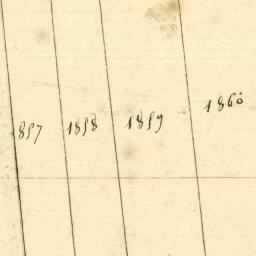 1857 1858 1859 1860